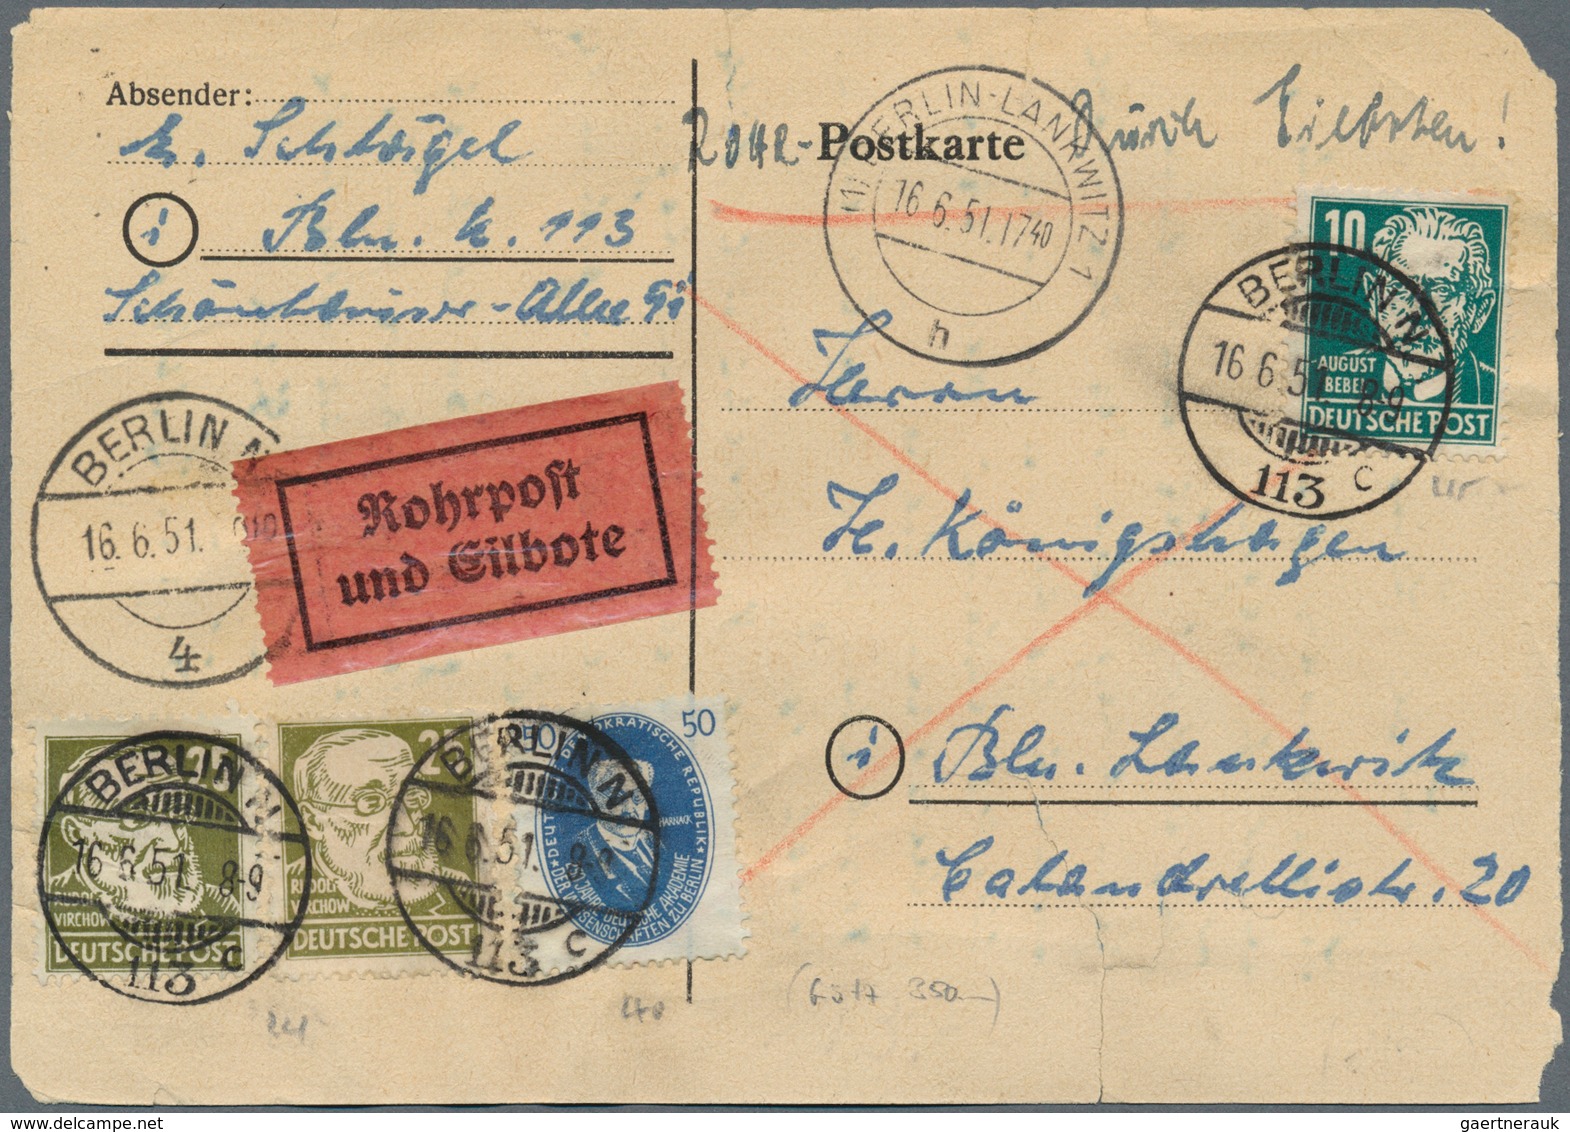 Absender:
Schlägel
ROHR-Postkarte Durch Eilboten!
Bln. N. 113
Schönhauser-Allee
BERLIN-LANKWITZ 1
16.6.51.17 40
h
10
AUGUST
BEBEL
DEUTSCHE POST
BERLIN N
16.6.51. 8-9
113 c
Herrn
H. Königshagen
BERLIN N
16.6.51.
4
Rohrpost
und Eilbote
Bln. Lankwitz
20
25
RUDOLF
VIRCHOW
DEUTSCHE POST
BERLIN N
16.6.51. 8-9
113 c
25
RUDOLF
VIRCHOW
DEUTSCHE POST
BERLIN N
16.6.51. 8-9
113 c
50 50
DEUTSCHE DEMOKRATISCHE REPUBLIK
HARNACK
JAHRE DEUTSCHE AKADEMIE
DER WISSENSCHAFTEN ZU BERLIN
gaertnerauk @ www.delcampe.net